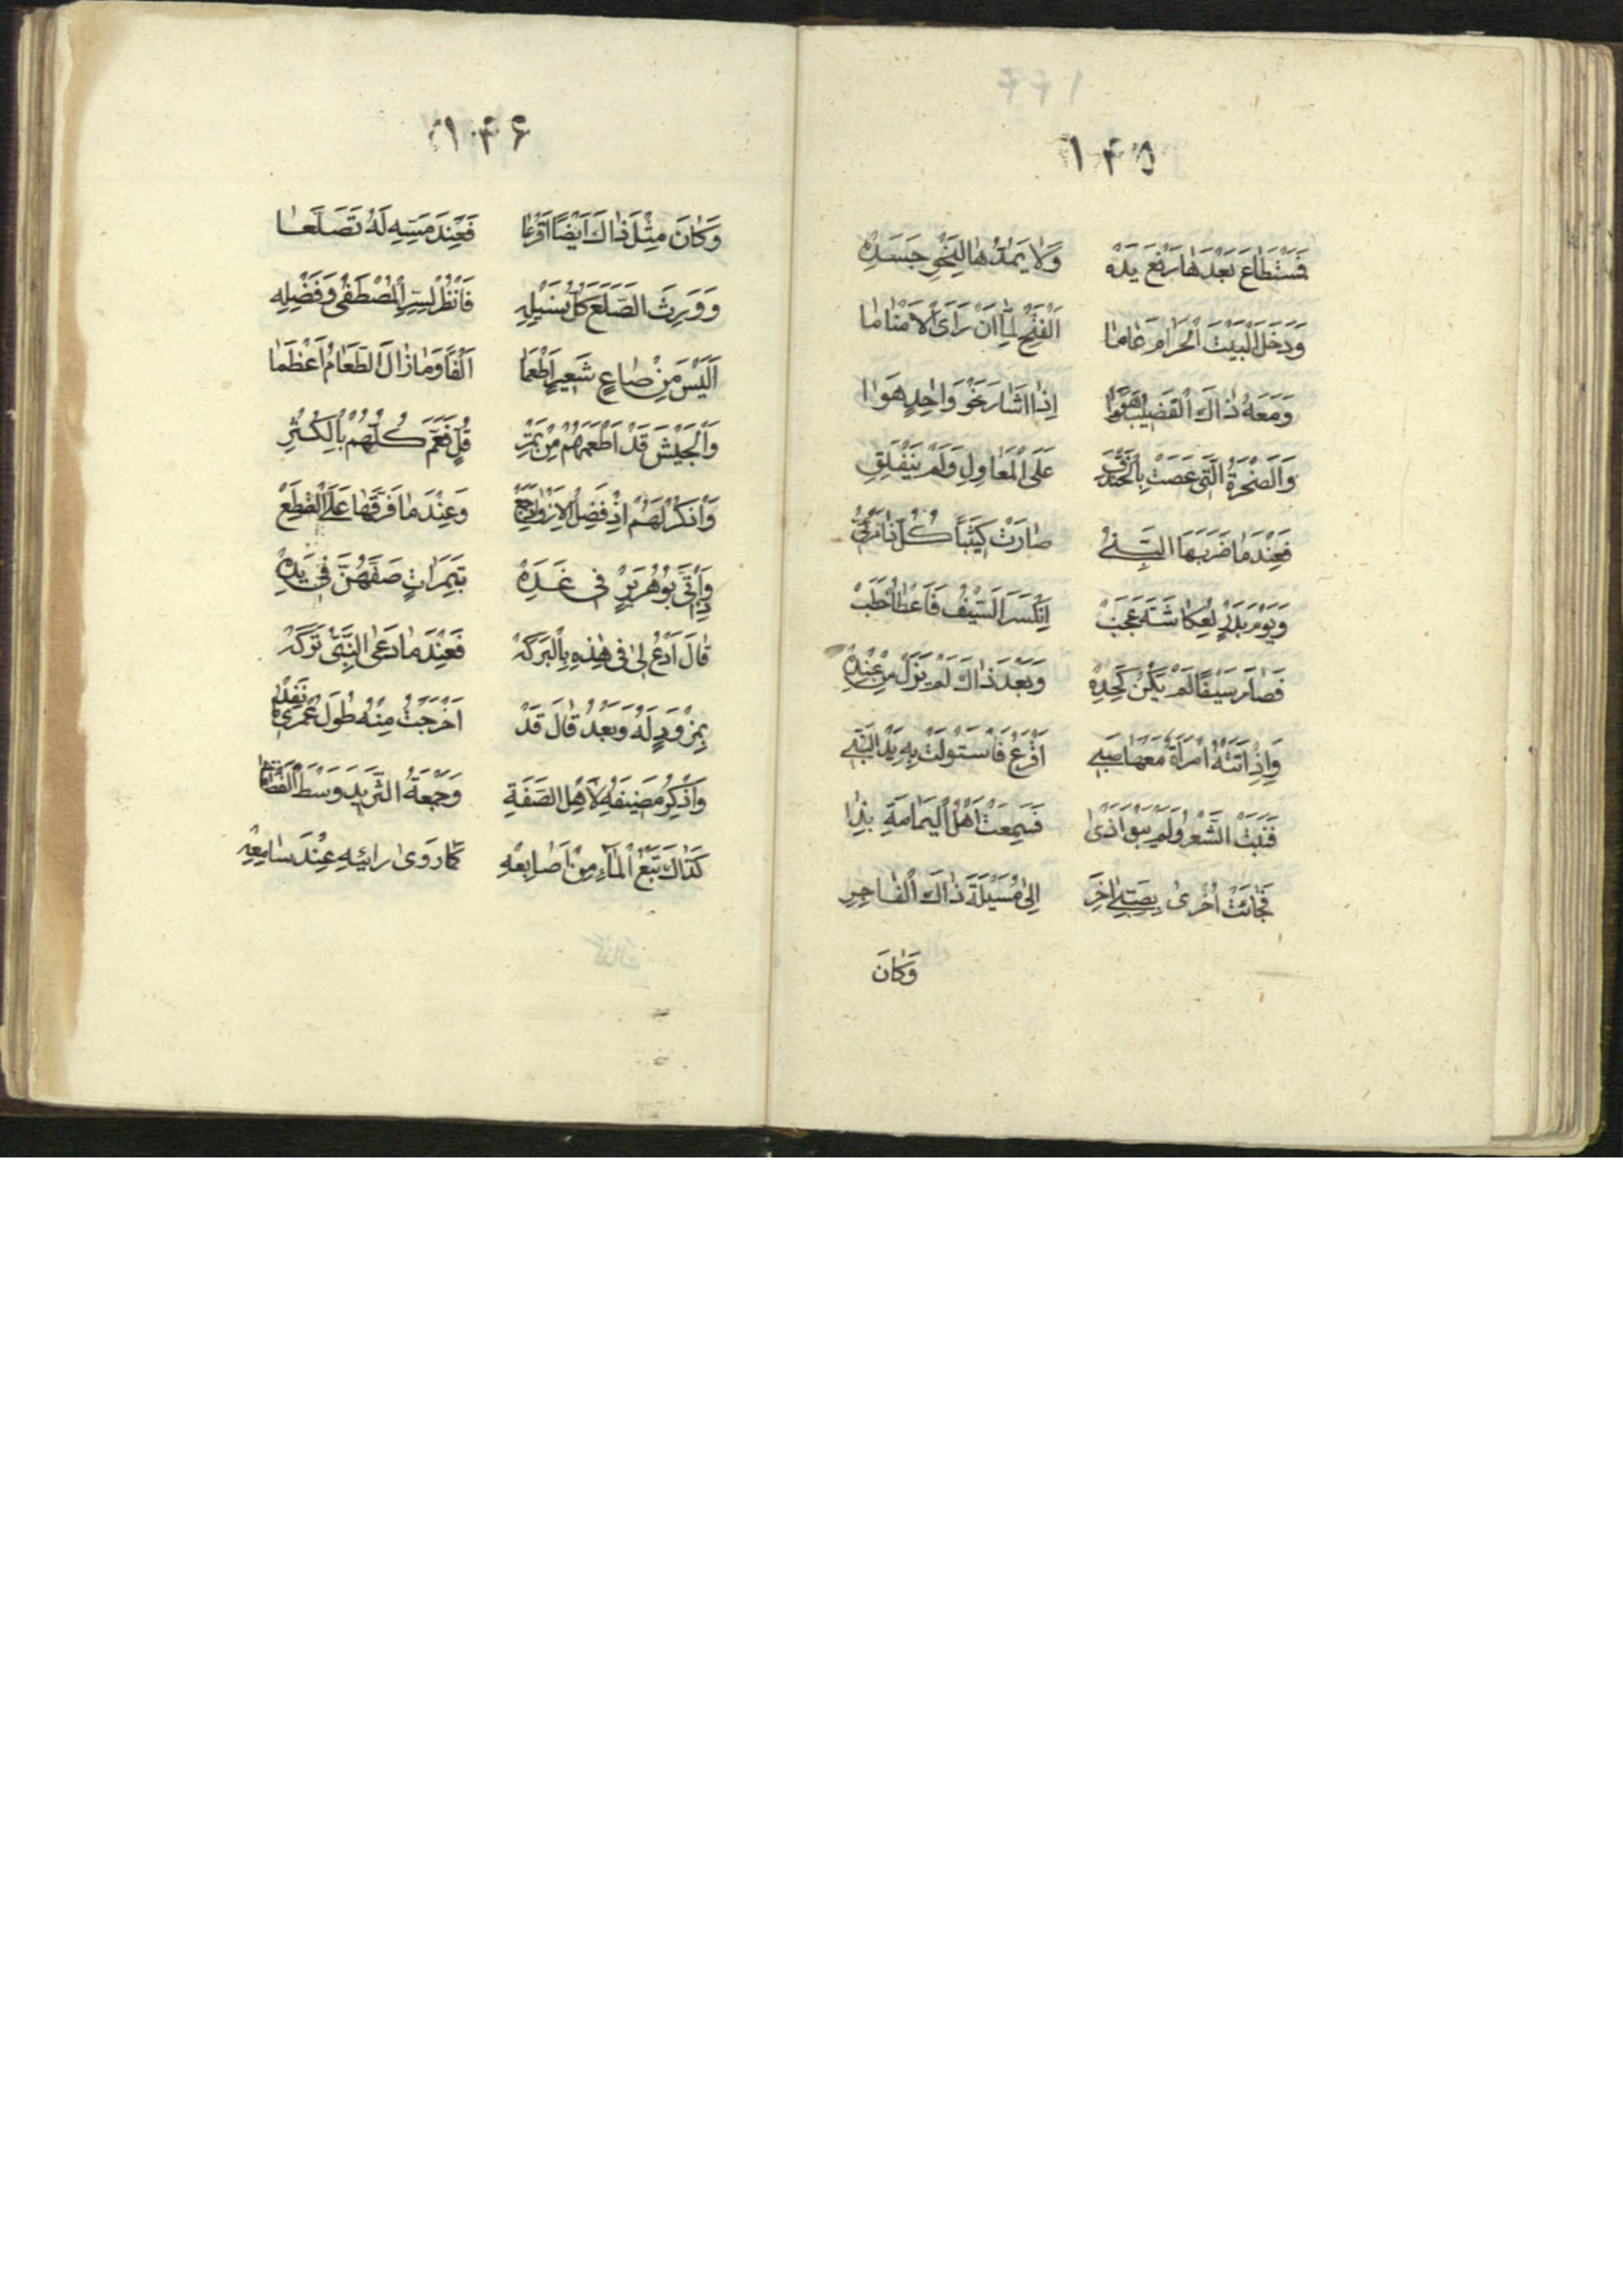 ١٤٥
فَسْتَطَاعَ بَعْدَهَا رَفْعَ يَدِهْ وَلَا يَمُدُّهَا لِنَحْوِ جَسَدِهْ
وَدَخَلَ الْبَيْتَ الْحَرَامَ عَامَا اَلْفَتْحِ لَمَّا اَنْ رَأَى الْاَصْنَامَا
وَمَعَهُ ذَاكَ الْقَضِيْبُ اِذَا اَشَارَ نَحْوَ وَاحِدٍ هَوَا
وَالصَّخْرَةُ الَّتِى عَصَتْ بِالْخَنْدَقِ عَلَى الْمَعَاوِلِ وَلَمْ يَنْفَلِقِ
فَعِنْدَ مَا ضَرَبَهَا النَّبِىُّ صَارَتْ كَثِيْبًا كُلُّ ذَا مَرْئِىُّ
وَيَوْمَ بَدْرٍ لِعُكَاشَةَ عَجَبْ اِنْكَسَرَ السَّيْفُ فَاَعْطَاهُ حَطَبْ
فَصَارَ سَيْفًا لَمْ يَكُنْ كَحَدِهْ وَبَعْدَ ذَاكَ لَمْ يَزَلْ مِنْ عِنْدِهْ
وَاِذْ اَتَتْهُ امْرَأَةٌ مَعَهَا صَبِى اَقْرَعْ فَاسْتَوْلَتْ بِهِ يَدُ النَّبِى
فَنَبَتَ الشَّعْرُ وَلَمْ يَبْقَ اَذَى فَسَمِعَتْ اَهْلُ الْيَمَامَةِ بِذَا
فَجَائَتْ اُخْرَى بِصَبِىٍّ اٰخَرَ اِلَى مُسَيْلَةَ ذَاكَ الْفَاجِرِ
وَكَانَ
١٤٦
وَكَانَ مِثْلَ ذَاكَ اَيْضًا اَقْرَعَا فَعِنْدَ مَسِّهِ لَهُ تَصَلَّعَا
وَوَرِثَ الصَّلَعَ كُلُّ نَسْلِهِ فَانْظُرْ لِسِرِّ الْمُصْطَفٰى وَفَضْلِهِ
اَلَيْسَ مِنْ صَاعِ شَعِيْرٍ اَطْعَمَا اَلْفًا وَمَا زَالَ الطَّعَامُ اَعْظَمَا
وَالْجَيْشَ قَدْ اَطْعَمَهُمْ مِنْ تَمْرِ قُلٍّ فَعَمَّ كُلَّهُمْ بِالْكَثْرِ
لَهُمْ اِذْ فَضْلُ الْاَزْوَادِ وَعِنْدَ مَا فَرَّقَهَا عَلَى
وَاِذْ اَتَى بُوْهُرَيْرٍ فِى غَدِهْ بِتَمَرَاتٍ صَفَّهُنَّ فِى يَدِهْ
قَالَ اَدْعُ لِى فِى هٰذِهِ بِالْبَرَكَهْ فَعِنْدَ مَا دَعَى النَّبِىُّ تَرَكَهْ
بِمِزْوَدٍ لَهُ وَبَعْدُ قَالَ قَدْ اَخْرَجْتُ مِنْهُ طُوْلَ عُمْرِى
وَاذْكُرْ مَضِيْفَهُ لِاَهْلِ الصُّفَّةِ وَجَمْعَهُ الثَّرِيْدَ وَسْطَ
كَذَاكَ نَبْعُ الْمَاءِ مِنْ اَصَابِعِهِ كَمَا رَوَى رَائِيْهِ عِنْدَ سَامِعِهْ